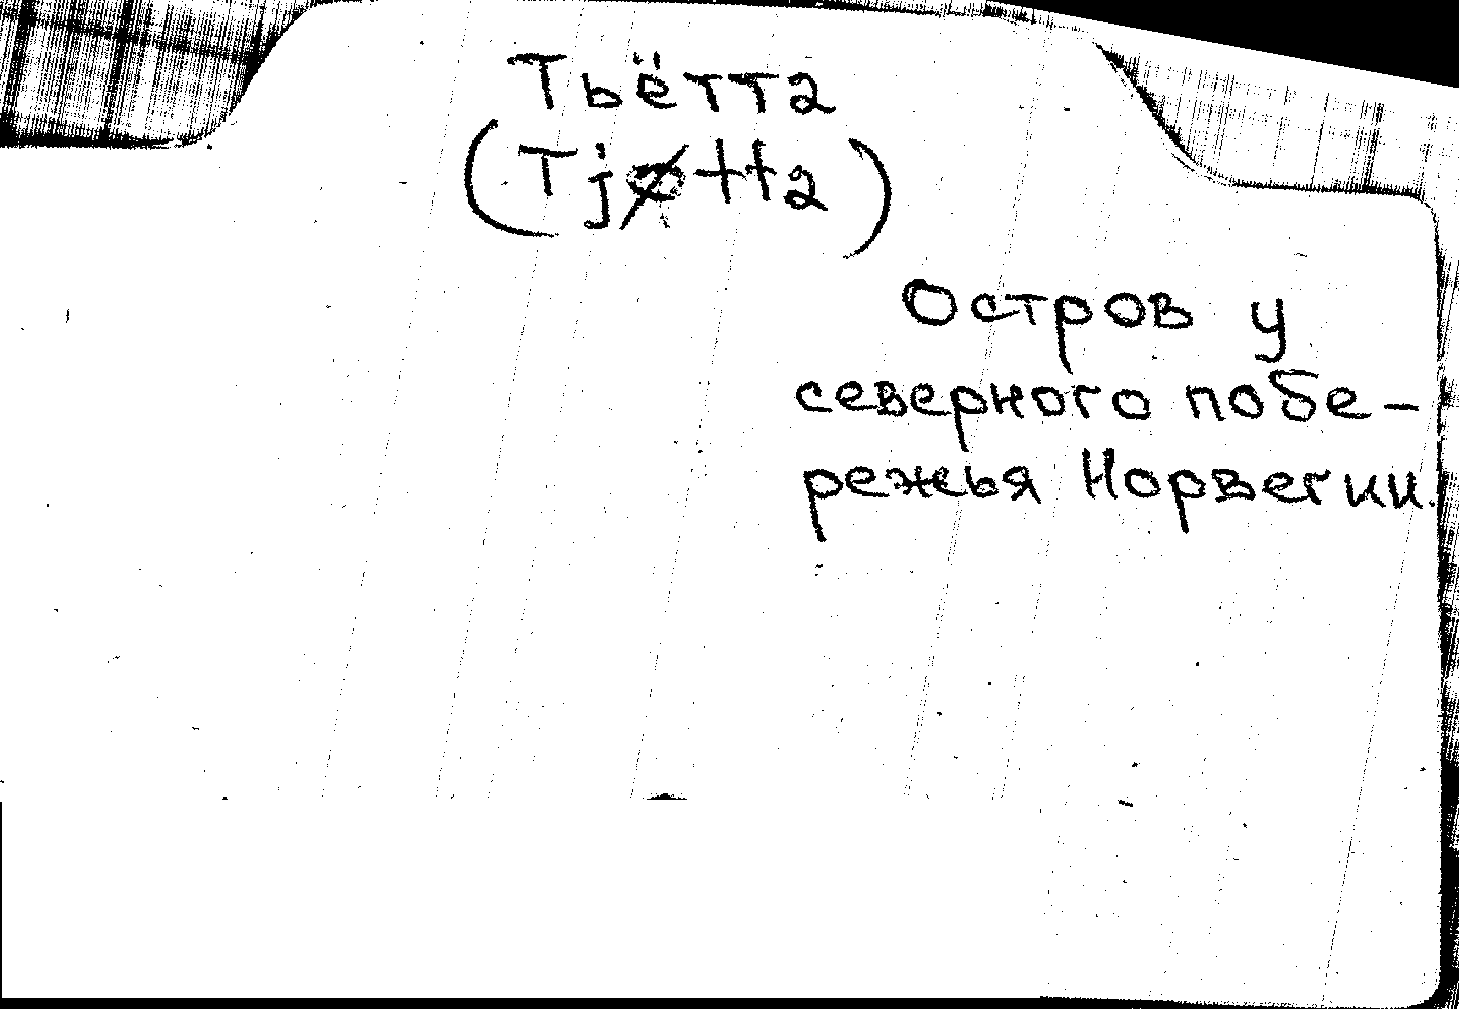 Тьётта
(Tjøtta)
Остров у
северного побе-
режья Норвегии.